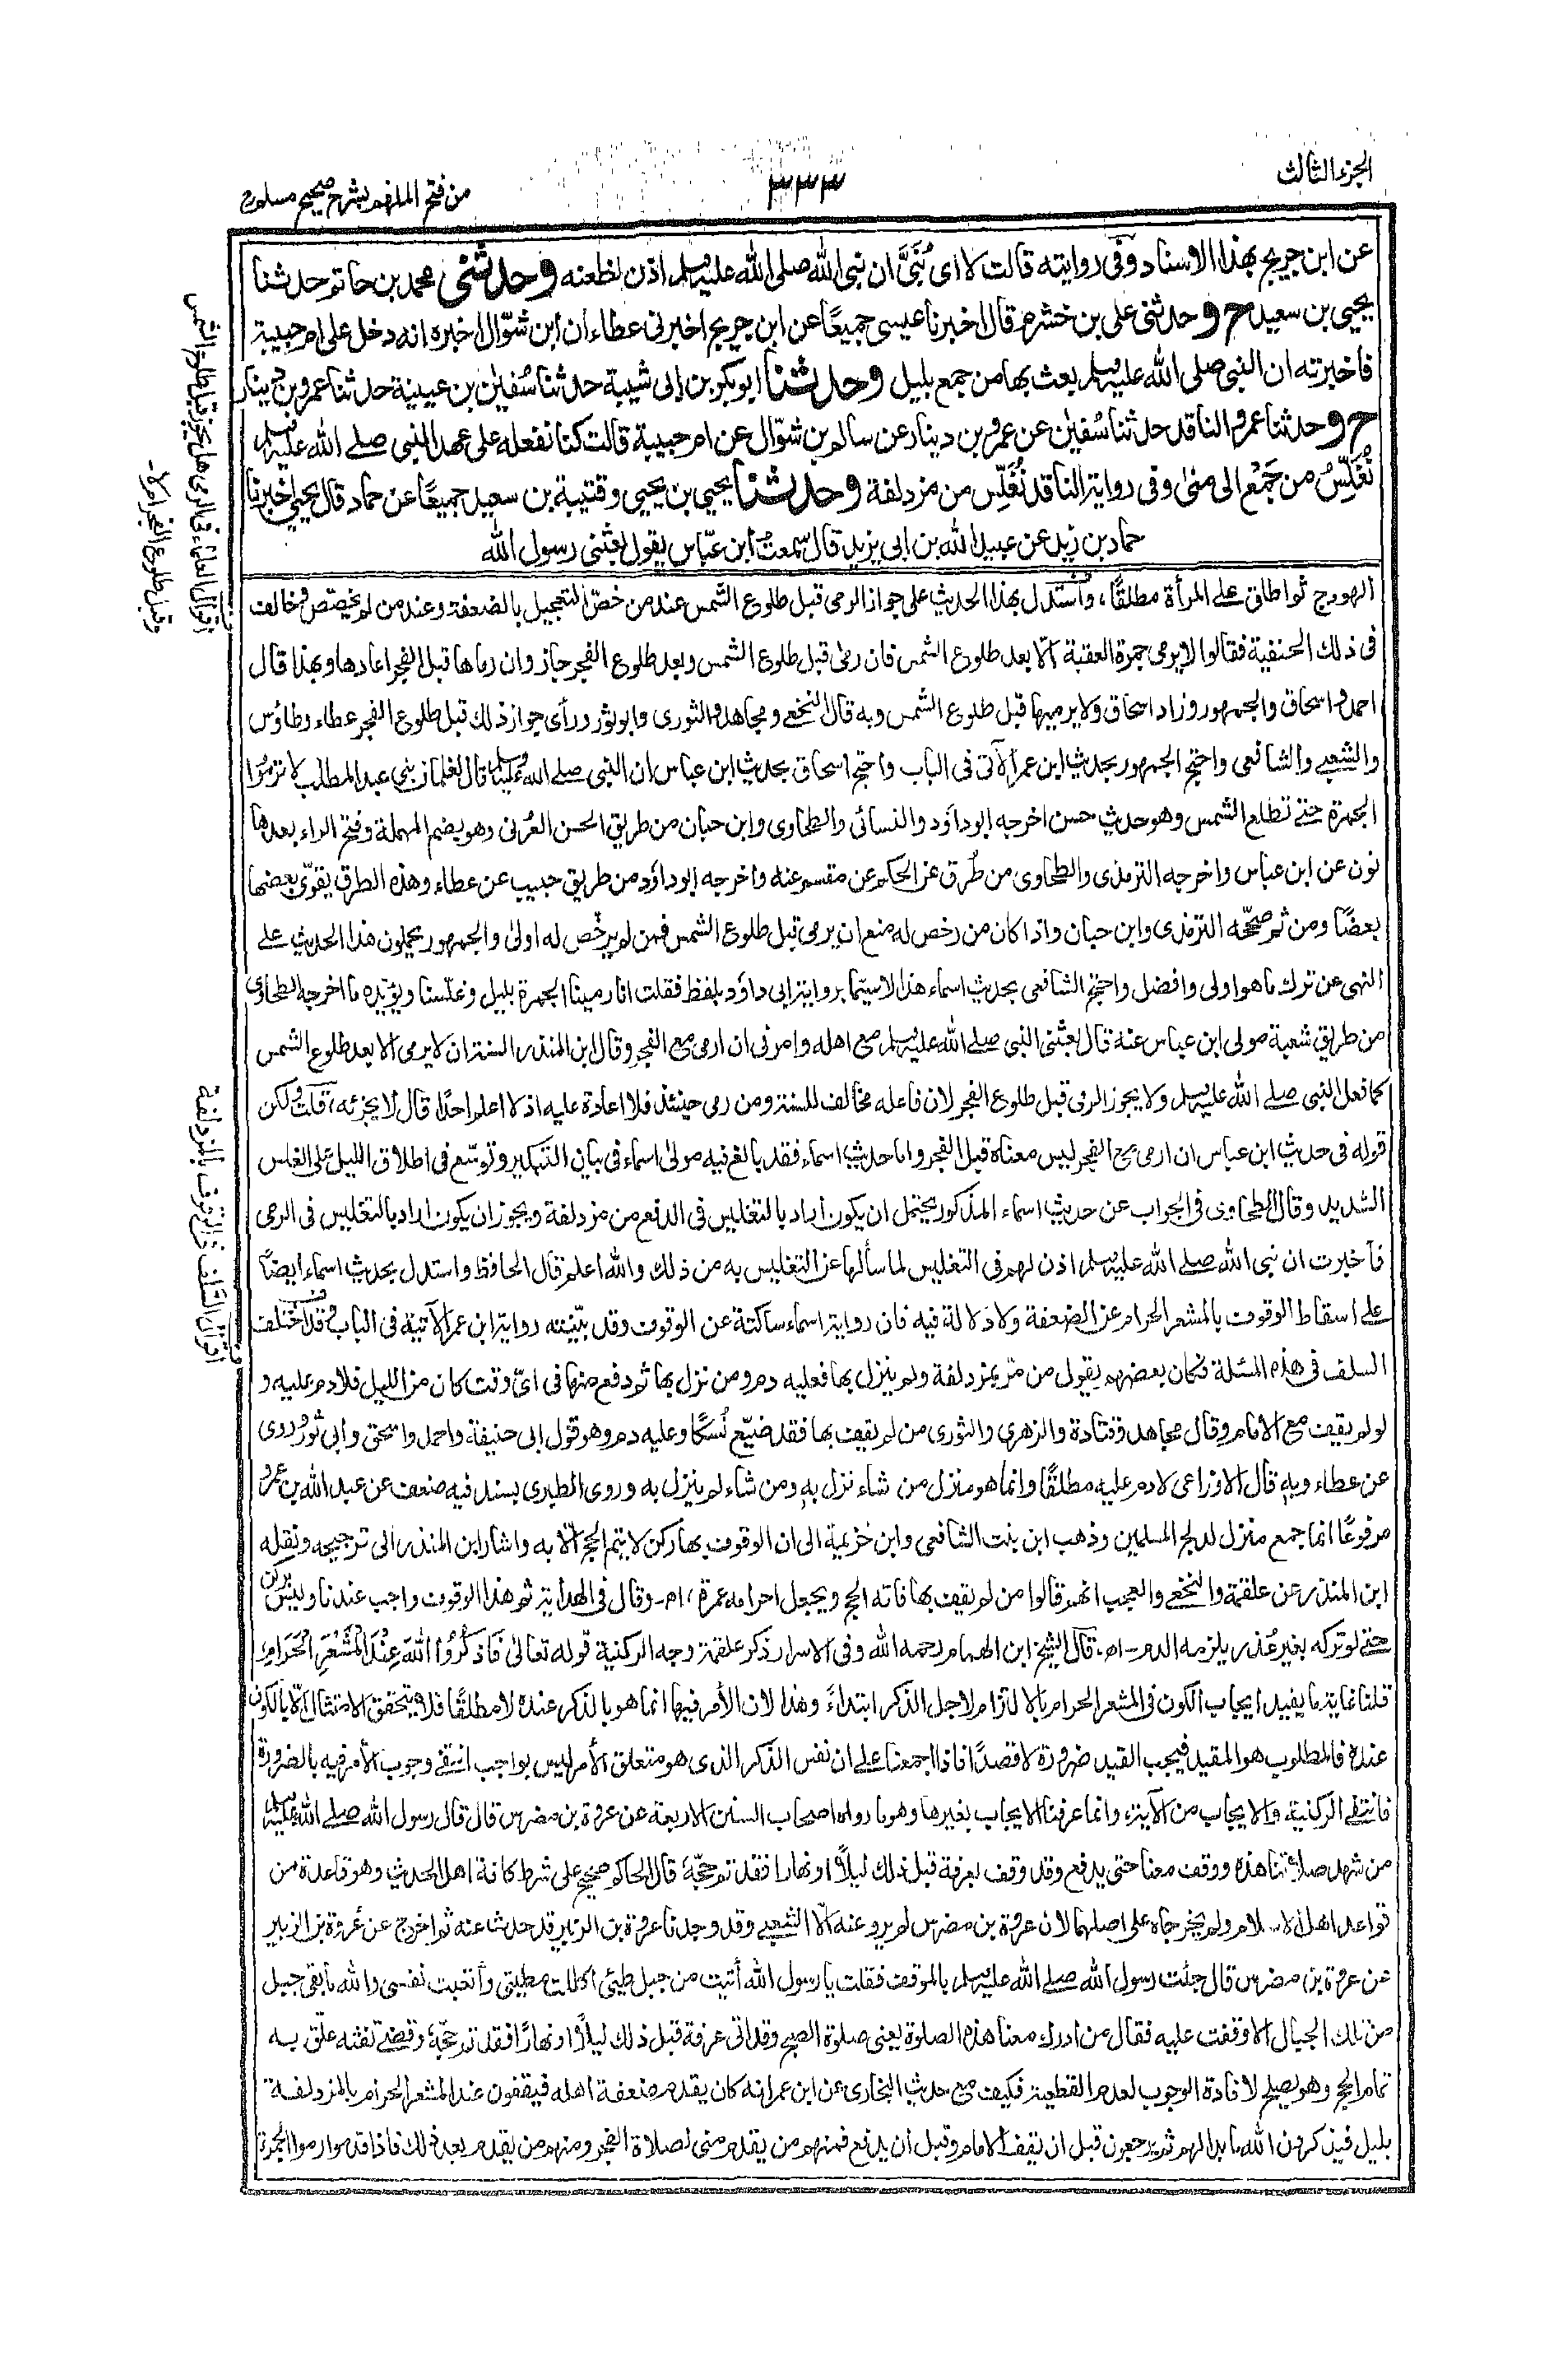 الجزء الثالث
٣٣٣
من فتح الملهم بشرح صحيح مسلم
عن ابن جريج بهذا الاسناد وفى روايته قالت لا اى بُنَيَّ ان نبى الله صلى الله عليه وسلم اذن لظعنه وحدثنى محمد بن حاتم حدثنا
يحيى بن سعيد ح وحدثنى على بن خشرم قال اخبرنا عيسى جميعًا عن ابن جريج اخبرنى عطاء ان ابن شوّال اخبره انه دخل على ام حبيبة
فاخبرته ان النبى صلى الله عليه وسلم بعث بها من جمع بليل وحدثنا ابو بكر بن ابى شيبة حدثنا سُفيٰن بن عيينة حدثنا عمرو بن دينار
ح وحدثنا عمرو الناقد حدثنا سُفيٰن عن عمرو بن دينار عن سالم بن شوّال عن ام حبيبة قالت كنا نفعله على عهد النبى صلے الله عليه وسلم
نُغَلِّسُ من جَمْع الى منىٰ وفى رواية الناقد نُغَلِّس من مزدلفة وحدثنا يحيي بن يحيي وقتيبة بن سعيد جميعًا عن حماد قال يحيي اخبرنا
حماد بن زيد عن عبيد الله بن ابى يزيد قال سمعتُ ابن عبّاس يقول بعثنى رسول الله
الهودج ثم اطلق على المرأة مطلقًا، واستدل بهذا الحديث على جواز الرمى قبل طلوع الشمس عند من خصّ التعجيل بالضعفة وعند من لم يخصّص وخالف
فى ذلك الحنفية فقالوا لا يرمى جمرة العقبة الّا بعد طلوع الشمس فان رمىٰ قبل طلوع الشمس وبعد طلوع الفجر جاز وان رماها قبل الفجر اعادها وبهذا قال
احمد واسحاق والجمهور وزاد اسحاق ولا يرميها قبل طلوع الشمس وبه قال النخعے ومجاهد والثورى وابو ثور ورأى جواز ذلك قبل طلوع الفجر عطاء وطاؤس
والشعبے والشافعى واحتج الجمهور بحديث ابن عمر الآتى فى الباب واحتج اسحاق بحديث ابن عباس ان النبى صلے الله عليه وسلم قال لغلمان بنى عبد المطلب لا ترموا
الجمرة حتے تطلع الشمس وهو حديث حسن اخرجه ابو داؤد والنسائى والطحاوى وابن حبان من طريق الحسن العُرَنى وهو بضم المهملة وفتح الراء بعدها
نون عن ابن عباس واخرجه الترمذى والطحاوى من طُرق عن الحكم عن مقسم عنه واخرجه ابو داؤد من طريق حبيب عن عطاء وهذه الطرق يقوّى بعضها
بعضًا ومن ثم صحّحه الترمذى وابن حبان واذا كان من رخص له منع ان يرمى قبل طلوع الشمس فمن لم يرخّص له اولىٰ والجمهور يحملون هذا الحديث علے
النهى عن ترك ما هو اولى وافضل واحتج الشافعى بحديث اسماء هذا لا سيّما برواية ابى داؤد بلفظ فقلت انا رمينا الجمرة بليل وغلّسنا ويؤيّده ما اخرجه الطحاوى
من طريق شعبة مولى ابن عباس عنه قال بعثنى النبى صلے الله عليه وسلم مع اهله وامرنى ان ارمى مع الفجر وقال ابن المنذر السنة ان لا يرمى الا بعد طلوع الشمس
كما فعل النبى صلے الله عليه وسلم ولا يجوز الرمى قبل طلوع الفجر لان فاعله مخالف للسنة ومن رمى حينئذ فلا اعادة عليه اذ لا اعلم احدًا قال لا يجزئه، قلت ولكن
قوله فى حديث ابن عباس ان ارمى مع الفجر ليس معناه قبل الفجر واما حديث اسماء فقد بالغ فيه مولىٰ اسماء فى بيان التبكير وتوسّع فى اطلاق الليل على الغلس
الشديد وقال الطحاوى فى الجواب عن حديث اسماء المذكور يحتمل ان يكون اراد بالتغليس فى الدفع من مزدلفة ويجوز ان يكون اراد بالتغليس فى الرمى
فاخبرت ان نبى الله صلے الله عليه وسلم اذن لهم فى التغليس لما سألها عن التغليس به من ذلك والله اعلم قال الحافظ واستدل بحديث اسماء ايضًا
علے اسقاط الوقوف بالمشعر الحرام عن الضعفة ولا دلالة فيه فان رواية اسماء ساكتة عن الوقوف وقد بيّنته رواية ابن عمر الآتية فى الباب وقد اختلف
السلف فى هذه المسئلة فكان بعضهم يقول من مرّ بمزدلفة ولم ينزل بها فعليه دم ومن نزل بها ثم دفع منها فى اىّ وقت كان من الليل فلا دم عليه و
لو لم يقف مع الامام وقال مجاهد وقتادة والزهرى والثورى من لم يقف بها فقد ضيّع نُسكًا وعليه دم وهو قول ابى حنيفة واحمد واسحٰق وأبى ثور وروى
عن عطاء وبه قال الاوزاعى لا دم عليه مطلقًا وانما هو منزل من شاء نزل به ومن شاء لم ينزل به وروى الطبرى بسند فيه ضعف عن عبد الله بن عمرو
مرفوعًا انما جمع منزل لدلج المسلمين وذهب ابن بنت الشافعى وابن خزيمة الى ان الوقوف بها ركن لا يتم الحج الّا به واشار ابن المنذر الى ترجيحه ونقله
ابن المنذر عن علقمة والنخعے والعجب انهم قالوا من لم يقف بها فاته الحج ويجعل احرامه عمرة، اھ۔ وقال فى الهداية ثم هذا الوقوف واجب عندنا وليس بركن
حتے لو تركه بغير عُذر يلزمه الدم۔ اھ۔ قال الشيخ ابن الهمام رحمه الله وفى الاسرار ذكر علقمة وجه الركنية قوله تعالىٰ فَاذْكُرُوا اللهَ عِنْدَ الْمَشْعَرِ الْحَرَامِ،
قلنا غاية ما يفيد ايجاب الكون فى المشعر الحرام بالالتزام لاجل الذكر ابتداءً وهذا لان الأمر فيها انما هو بالذكر عنده لا مطلقًا فلا يتحقق الامتثال الّا بالكون
عنده فالمطلوب هو المقيد فيجب القيد ضرورة لا قصدًا فاذا اجمعنا علے ان نفس الذكر الذى هو متعلق الأمر ليس بواجب انتفے وجوب الأمر فيه بالضرورة
فانتفے الركنية والايجاب من الآية، وانما عرفنا الايجاب بغيرها وهو ما رواه اصحاب السنن الاربعة عن عروة بن مضرس قال قال رسول الله صلے الله عليه وسلم
من شهد صلاتنا هذه ووقف معنا حتى يدفع وقد وقف بعرفة قبل ذلك ليلًا او نهارا فقد تم حجّه، قال الحاكم صحيح على شرط كافة اهل الحديث وهو قاعدة من
قواعد اهل الاسلام ولم يخرجاه على اصلهما لان عروة بن مضرس لم يرو عنه الّا الشعبے وقد وجدنا عروة بن الزبير قد حدث عنه ثم اخرج عن عُروة بن الزبير
عن عروة بن مضرس قال جئت رسول الله صلے الله عليه وسلم بالموقف فقلت يا رسول الله أتيت من جبل طيّئ اكللت مطيتى وأتعبت نفسى والله ما بقى جبل
من تلك الجبال الا وقفت عليه فقال من ادرك معنا هذه الصلوة يعنى صلوة الصبح وقد اتى عرفة قبل ذلك ليلًا او نهارًا فقد تم حجّه، وقضے تفثه علّق به
تمام الحج وهو يصلح لافادة الوجوب لعدم القطعية فكيف مع حديث البخارى عن ابن عمر انه كان يقدم ضعفة اهله فيقفون عند المشعر الحرام بالمزدلفة
بليل فيذكرون الله ما بدا لهم ثم يرجعون قبل ان يقف الامام وقبل أن يدفع فمنهم من يقدم منى لصلاة الفجر ومنهم من يقدم بعد ذلك فاذا قدموا رموا الجمرة
اقوال العلماء فى الرمى هل يجوز قبل طلوع الشمس
وقبل طلوع الفجر ام لا۔
اقوال السلف فى الوقوف بالمزدلفة